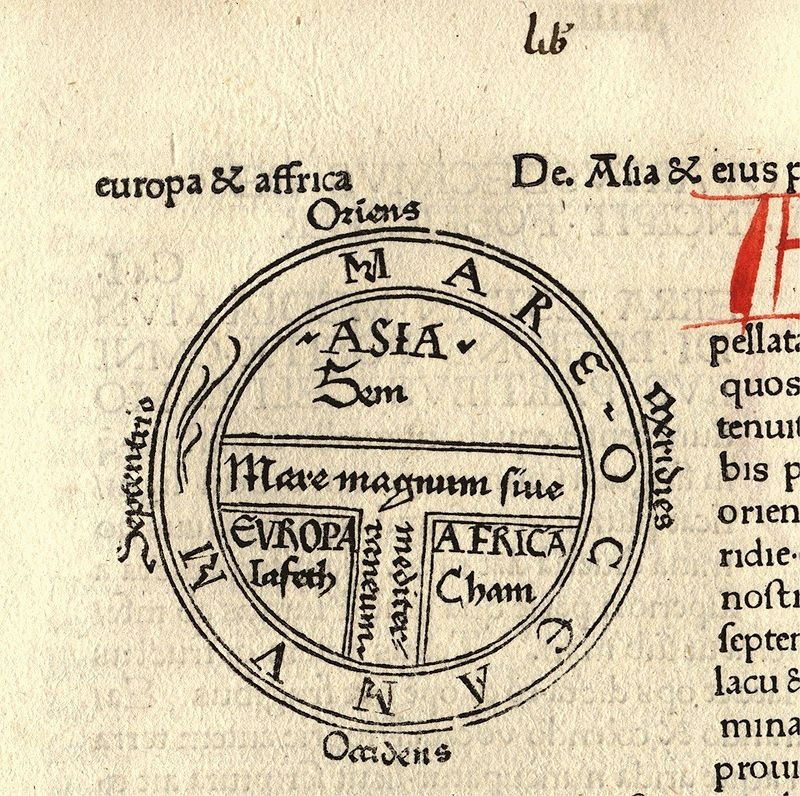 lib
europa & affrica
De. Asia & eius p
Oriens
MARE OCCEANVM
ASIA
Sem
Mare magnum siue
mediter
raneum
EVROPA
Iafeth
AFRICA
Cham
Septentrio
meridies
Occidens
pellata
quos
tenuit
bis p
orien
ridie.
nostr
septen
lacu &
mina
proui